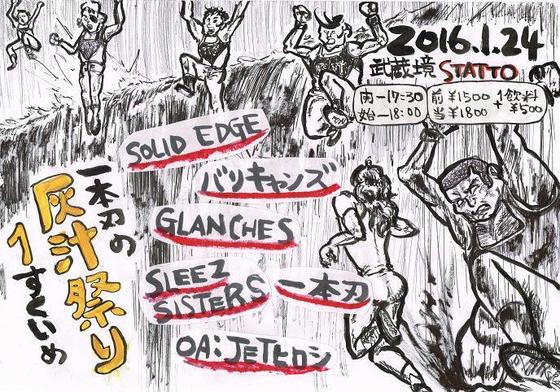 2016.1.24
武蔵境 STATTO
内―17:30
始―18:00
前¥1500
当¥1800
+
1飲料
¥500
一本刃の
灰汁祭り
1すくいめ
SOLID EDGE
バツキャンズ
GLANCHES
SLEEZ
SISTERS
一本刃
OA:JETヒロシ